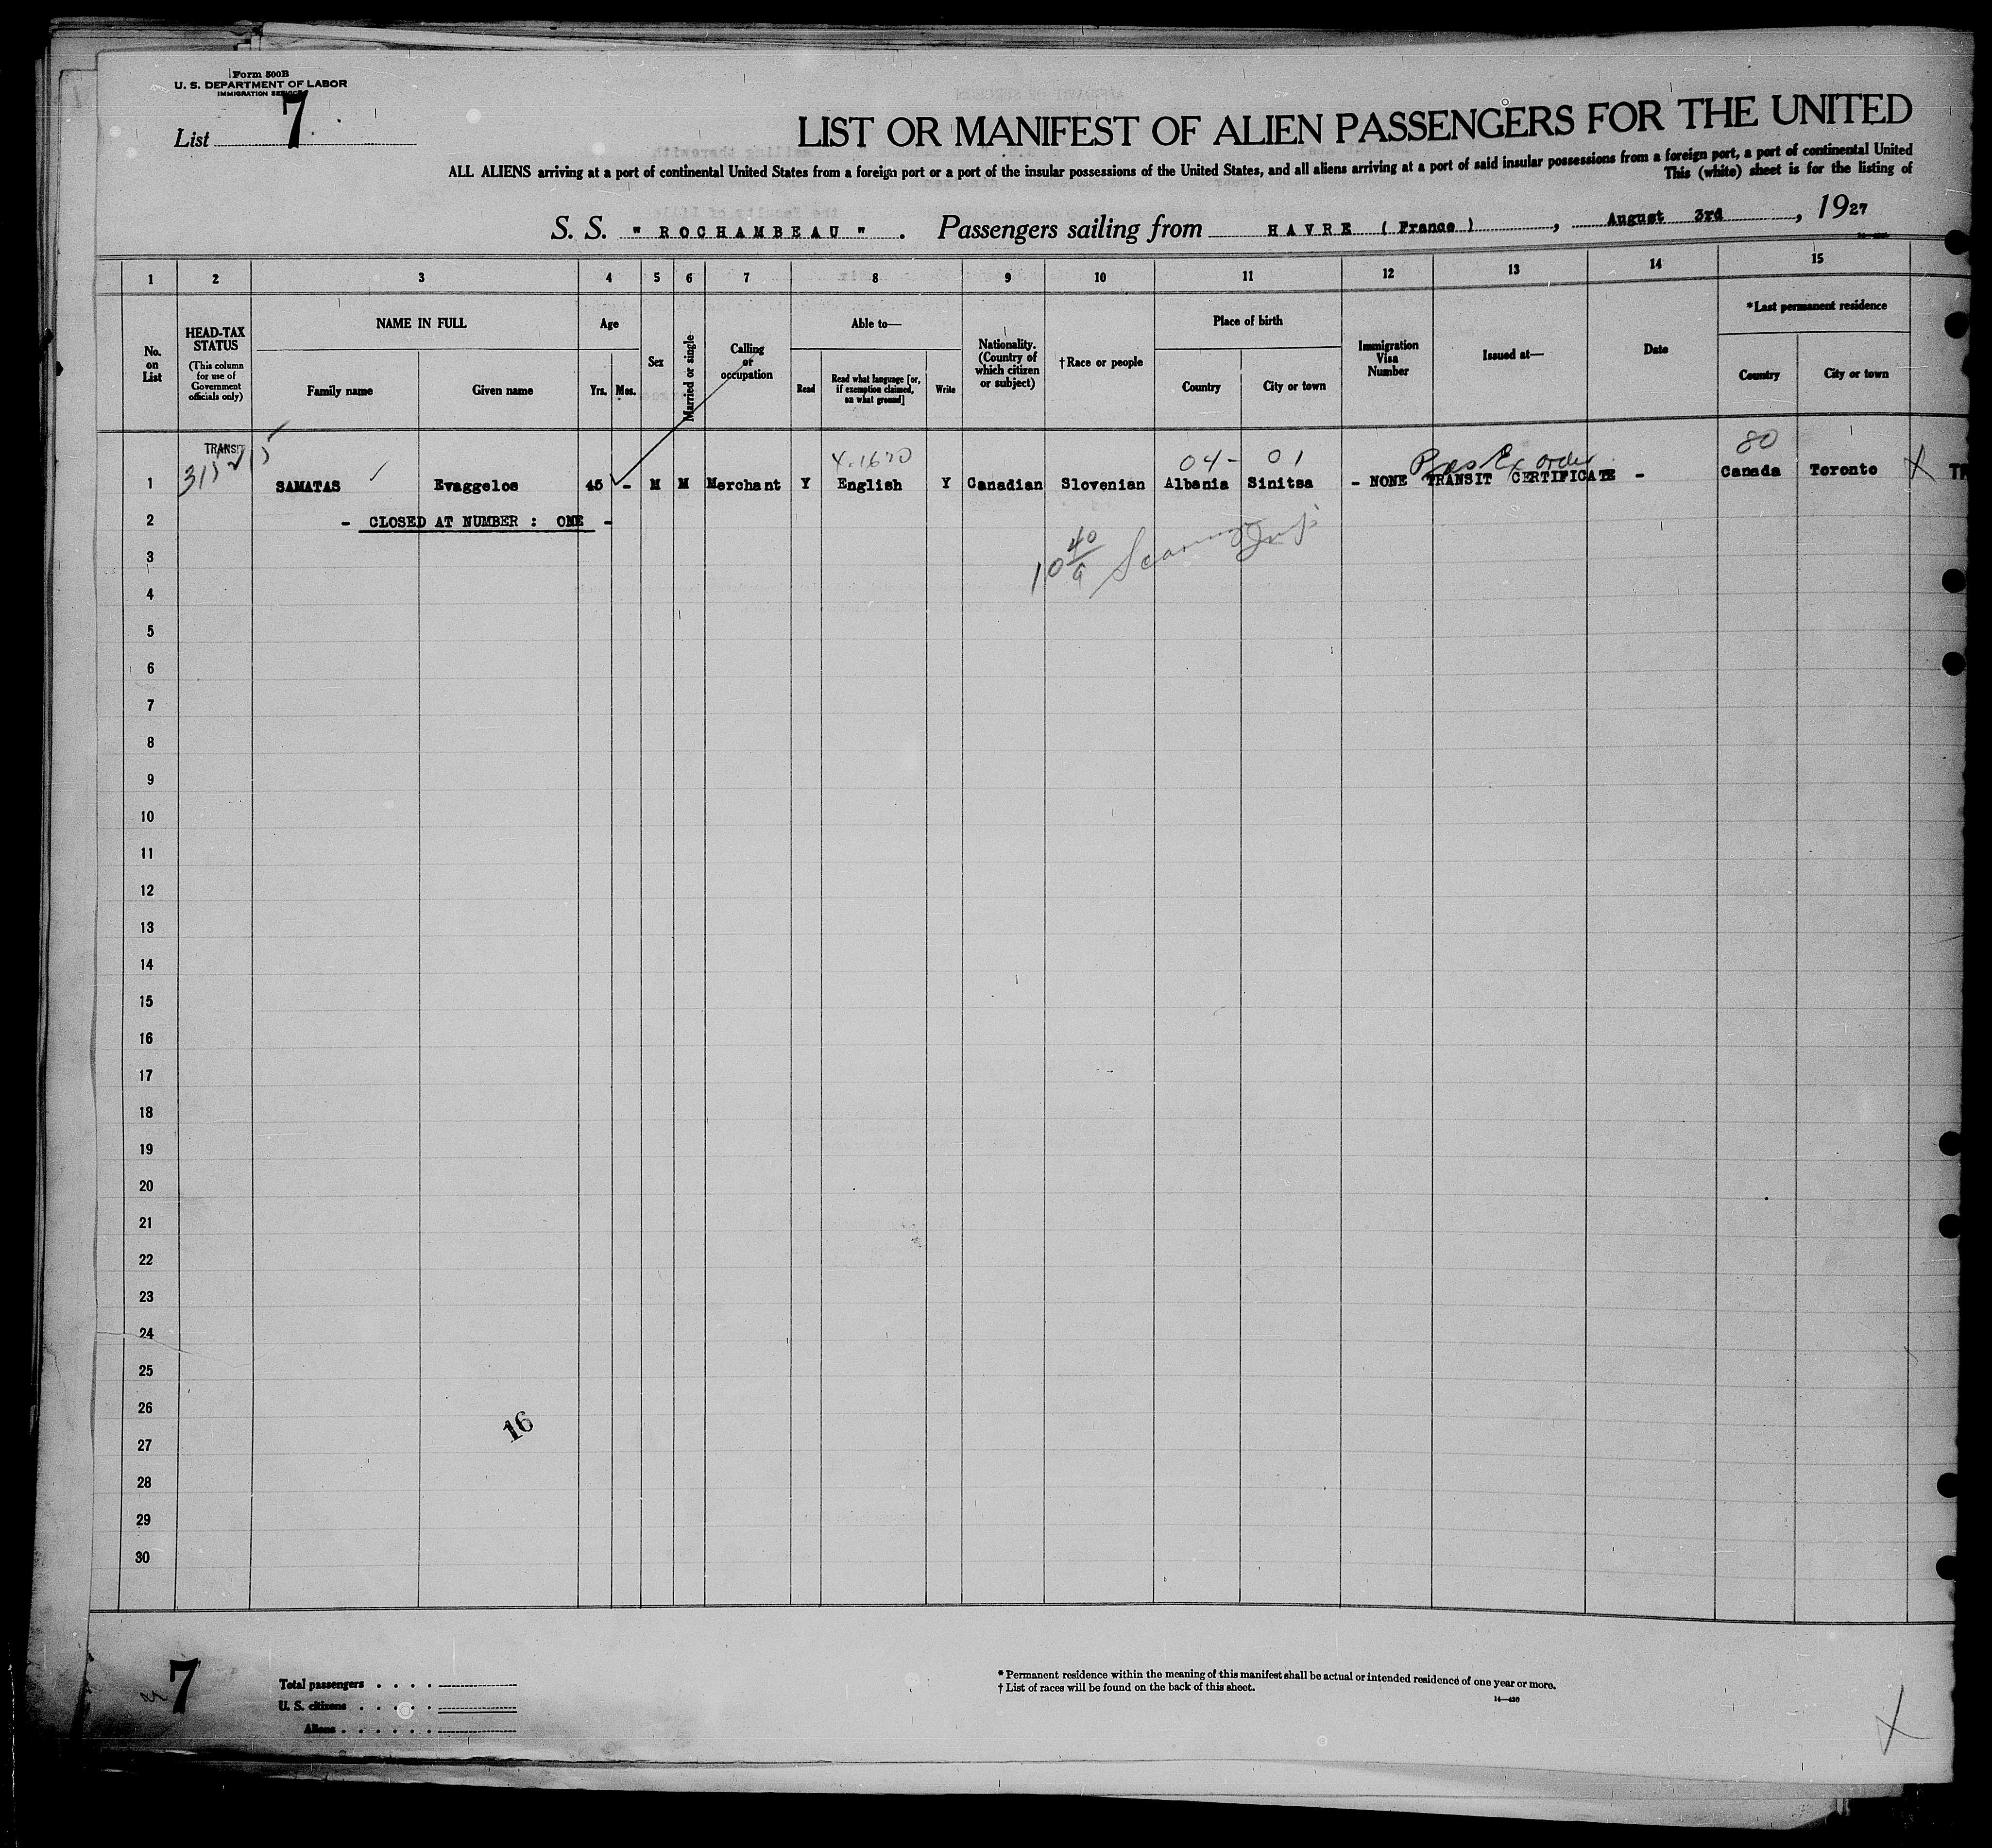 Form 500B
U. S. DEPARTMENT OF LABOR
IMMIGRATION SERVICE
List 7
LIST OR MANIFEST OF ALIEN PASSENGERS FOR THE UNITED
ALL ALIENS arriving at a port of continental United States from a foreign port or a port of the insular possessions of the United States, and all aliens arriving at a port of said insular possessions from a foreign port, a port of continental United
This (white) sheet is for the listing of
S. S. " ROCHAMBEAU " . Passengers sailing from HAVRE ( France ) , August 3rd , 1927
1 2 3 4 5 6 7 8 9 10 11 12 13 14 15
No. on List
HEAD-TAX STATUS
(This column for use of Government officials only)
NAME IN FULL
Family name Given name
Age
Yrs. Mos.
Sex
Married or single
Calling or occupation
Able to—
Read Read what language [or, if exemption claimed, on what ground] Write
Nationality. (Country of which citizen or subject)
†Race or people
Place of birth
Country City or town
Immigration Visa Number
Issued at—
Date
*Last permanent residence
Country City or town
TRANSIT 4-1620 04- 01 Ex order 80
1 SAMATAS Evaggelos 45 - M M Merchant Y English Y Canadian Slovenian Albania Sinitsa - NONE TRANSIT CERTIFICATE - Canada Toronto X TR
2 - CLOSED AT NUMBER : ONE -
3
4
5
6
7
8
9
10
11
12
13
14
15
16
17
18
19
20
21
22
23
24
25
26
16
27
28
29
30
7
Total passengers
U. S. citizens
Aliens
* Permanent residence within the meaning of this manifest shall be actual or intended residence of one year or more.
† List of races will be found on the back of this sheet.
14—430
X